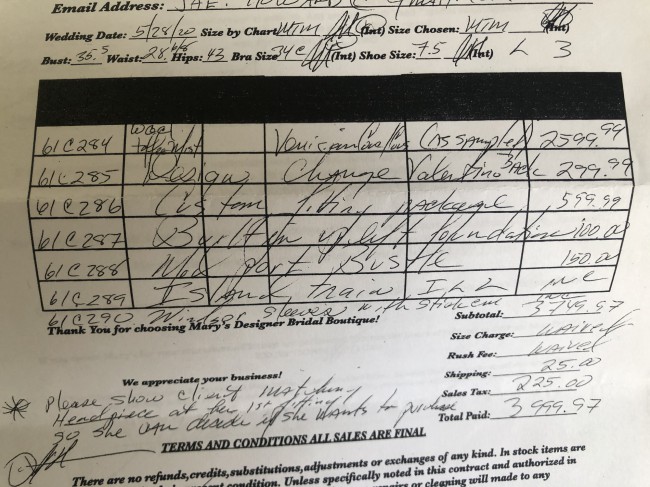 Email Address:
Wedding Date: 5/28/20 Size by Chart: MTM (Int) Size Chosen: MTM (Int)
Bust: 35.5 Waist: 28 Hips: 43 Bra Size 34C (Int) Shoe Size: 7.5 (Int) L 3
61C284 2599.99
61C285 Design Change Valentino Back 299.99
61C286 Custom fitting package 599.99
61C287 Built in uplift foundation 100.00
61C288 Mod port Bustle 150.00
61C289 Island train N/C
61C290 Windsor Sleeves with
Thank You for choosing Mary's Designer Bridal Boutique!
Subtotal: 3749.97
Size Charge: WAIVED
Rush Fee: WAIVED
We appreciate your business!
Shipping: 25.00
Sales Tax: 225.00
Total Paid: 3999.97
Please show client matching
Headpiece at her 1st fitting
so she can decide if she wants to purchase
TERMS AND CONDITIONS ALL SALES ARE FINAL
There are no refunds,credits,substitutions,adjustments or exchanges of any kind. In stock items are
condition. Unless specifically noted in this contract and authorized in
repairs or cleaning will made to any